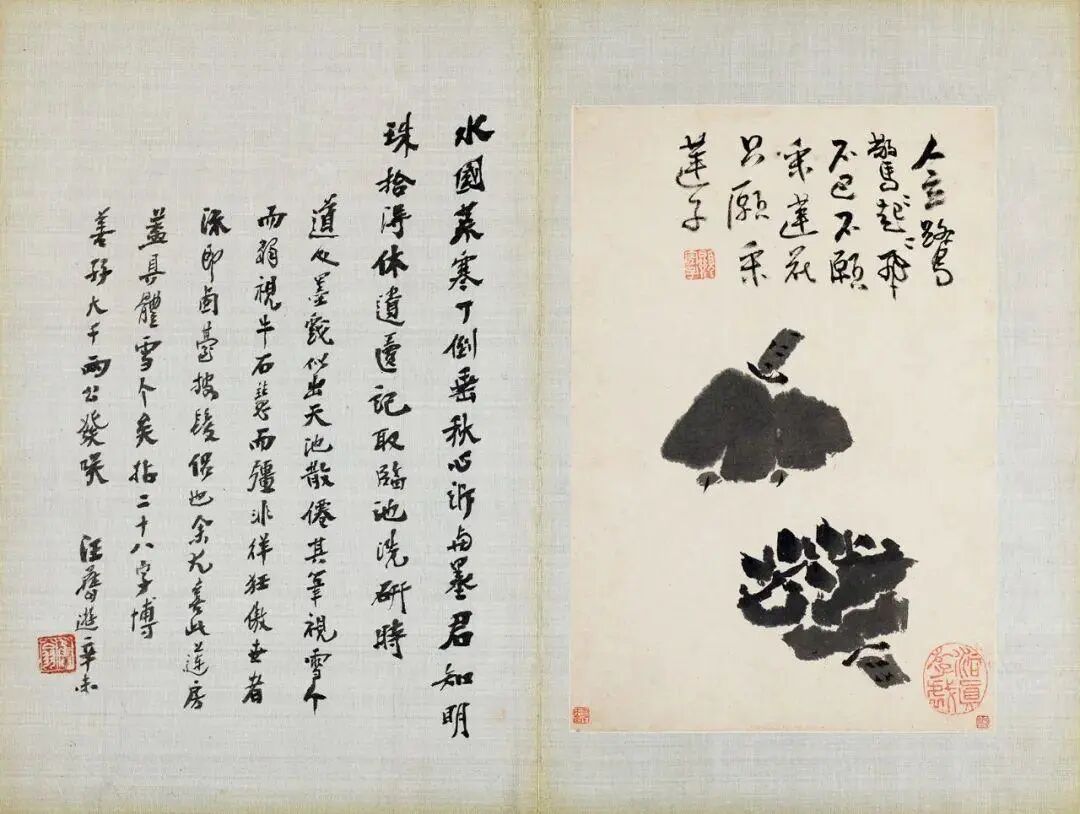 人立鷺
驚起飛
不已不願
采蓮花
只願采
蓮子
水國葉寒丁倒垂秋心訴与墨君知明
珠拾得休遺記取臨池洗研時
道人墨戲似出天池散僊其筆視雪个
而弱視牛石慧而彊非佯狂傲世者
流即鹵莽披髮也余尤喜此蓮房
蓋具體雪个矣拈二十八字博
善孖大千兩公發噱 汪遊辛未